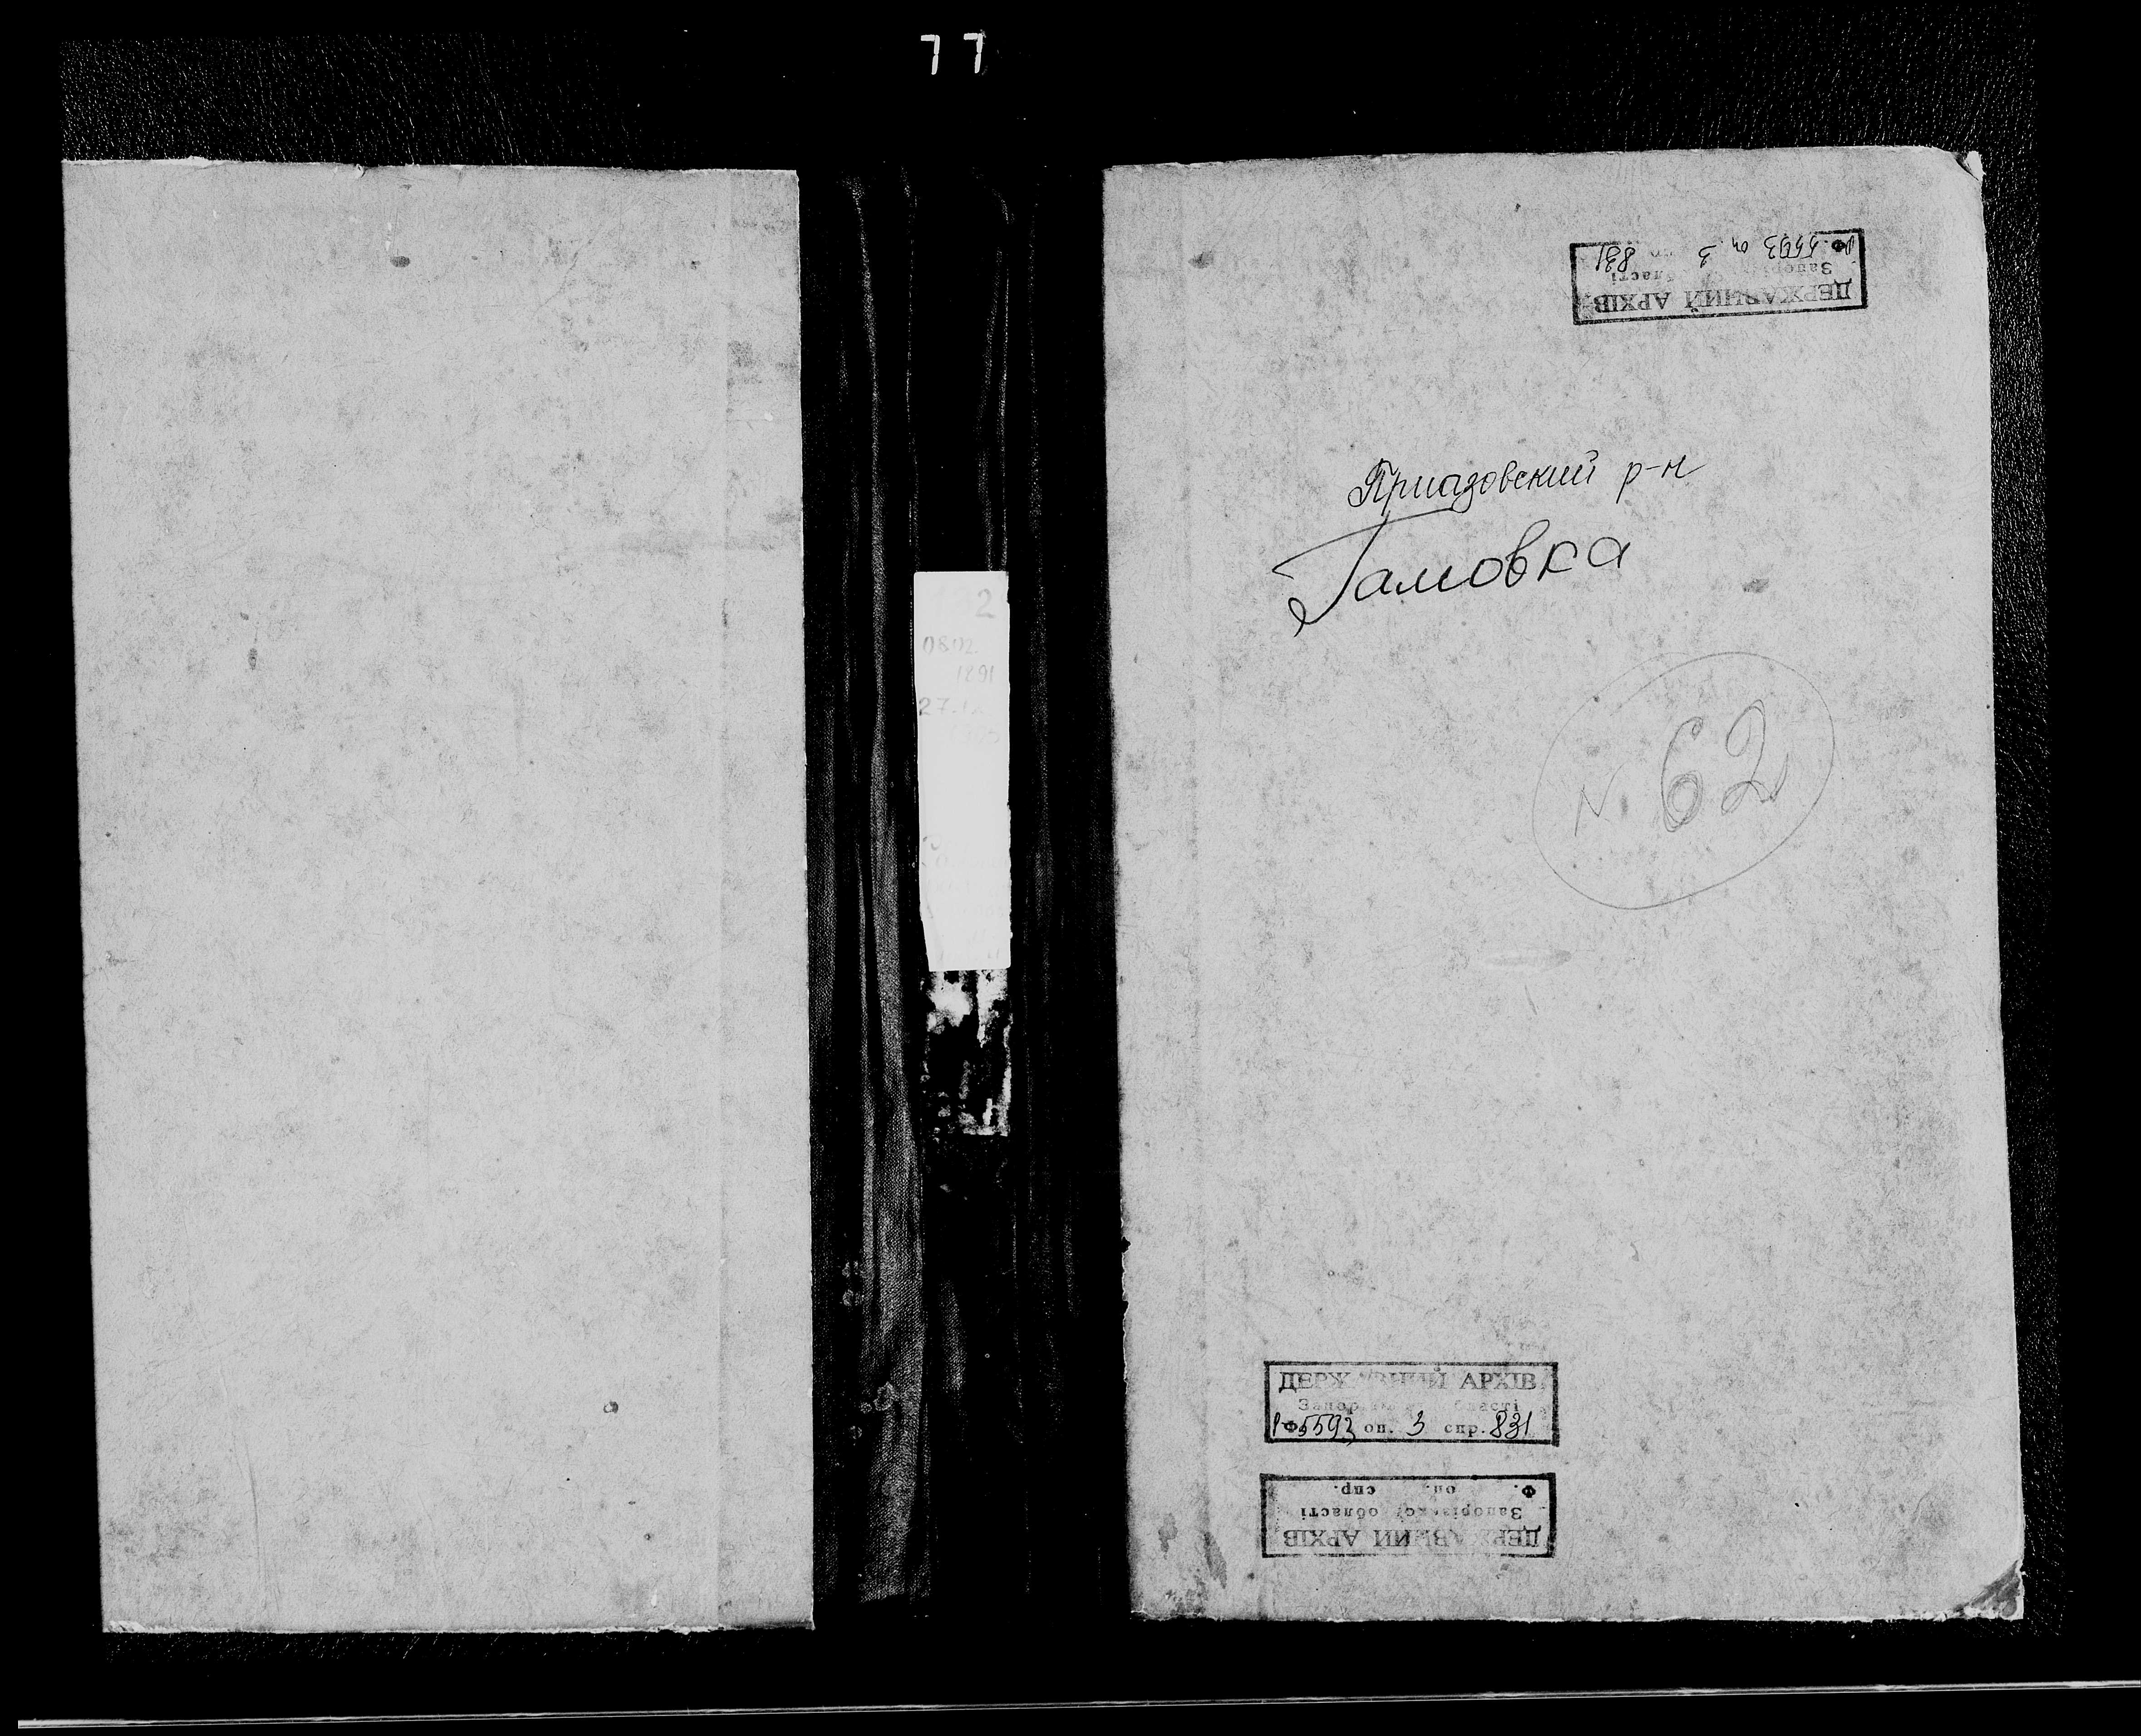 77
2
08.02.
1891
27.
ДЕРЖАВНИЙ АРХІВ
Запорізької області
Р Ф. 5593 оп. 3 спр. 831
Приазовский р-н
Гамовка
N 62
ДЕРЖАВНИЙ АРХІВ
Запорізької області
Р Ф. 5593 оп. 3 спр. 831
ДЕРЖАВНИЙ АРХІВ
Запорізької області
Ф. оп. спр.